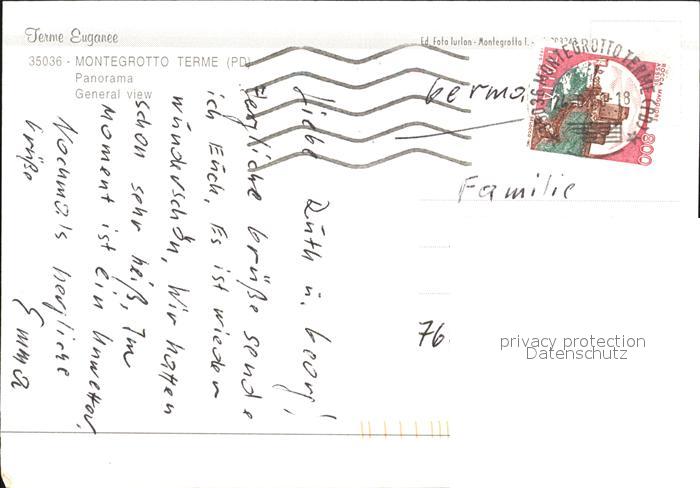 Terme Euganee
35036 - MONTEGROTTO TERME (PD)
Panorama
General view
Ed. Foto Turlon - Montegrotto T.
Liebe Ruth u. Georg!
Herzliche Grüße sende
ich Euch, Es ist wieder
wunderschön, Wir hatten
schon sehr heiß, Im
Moment ist ein Unwetter,
Nochmals herzliche
Grüße
Emma
Germa
Familie
76
35036 MONTEGROTTO TERME (PD)
18
ROCCA MAGGIORE
800
privacy protection
Datenschutz